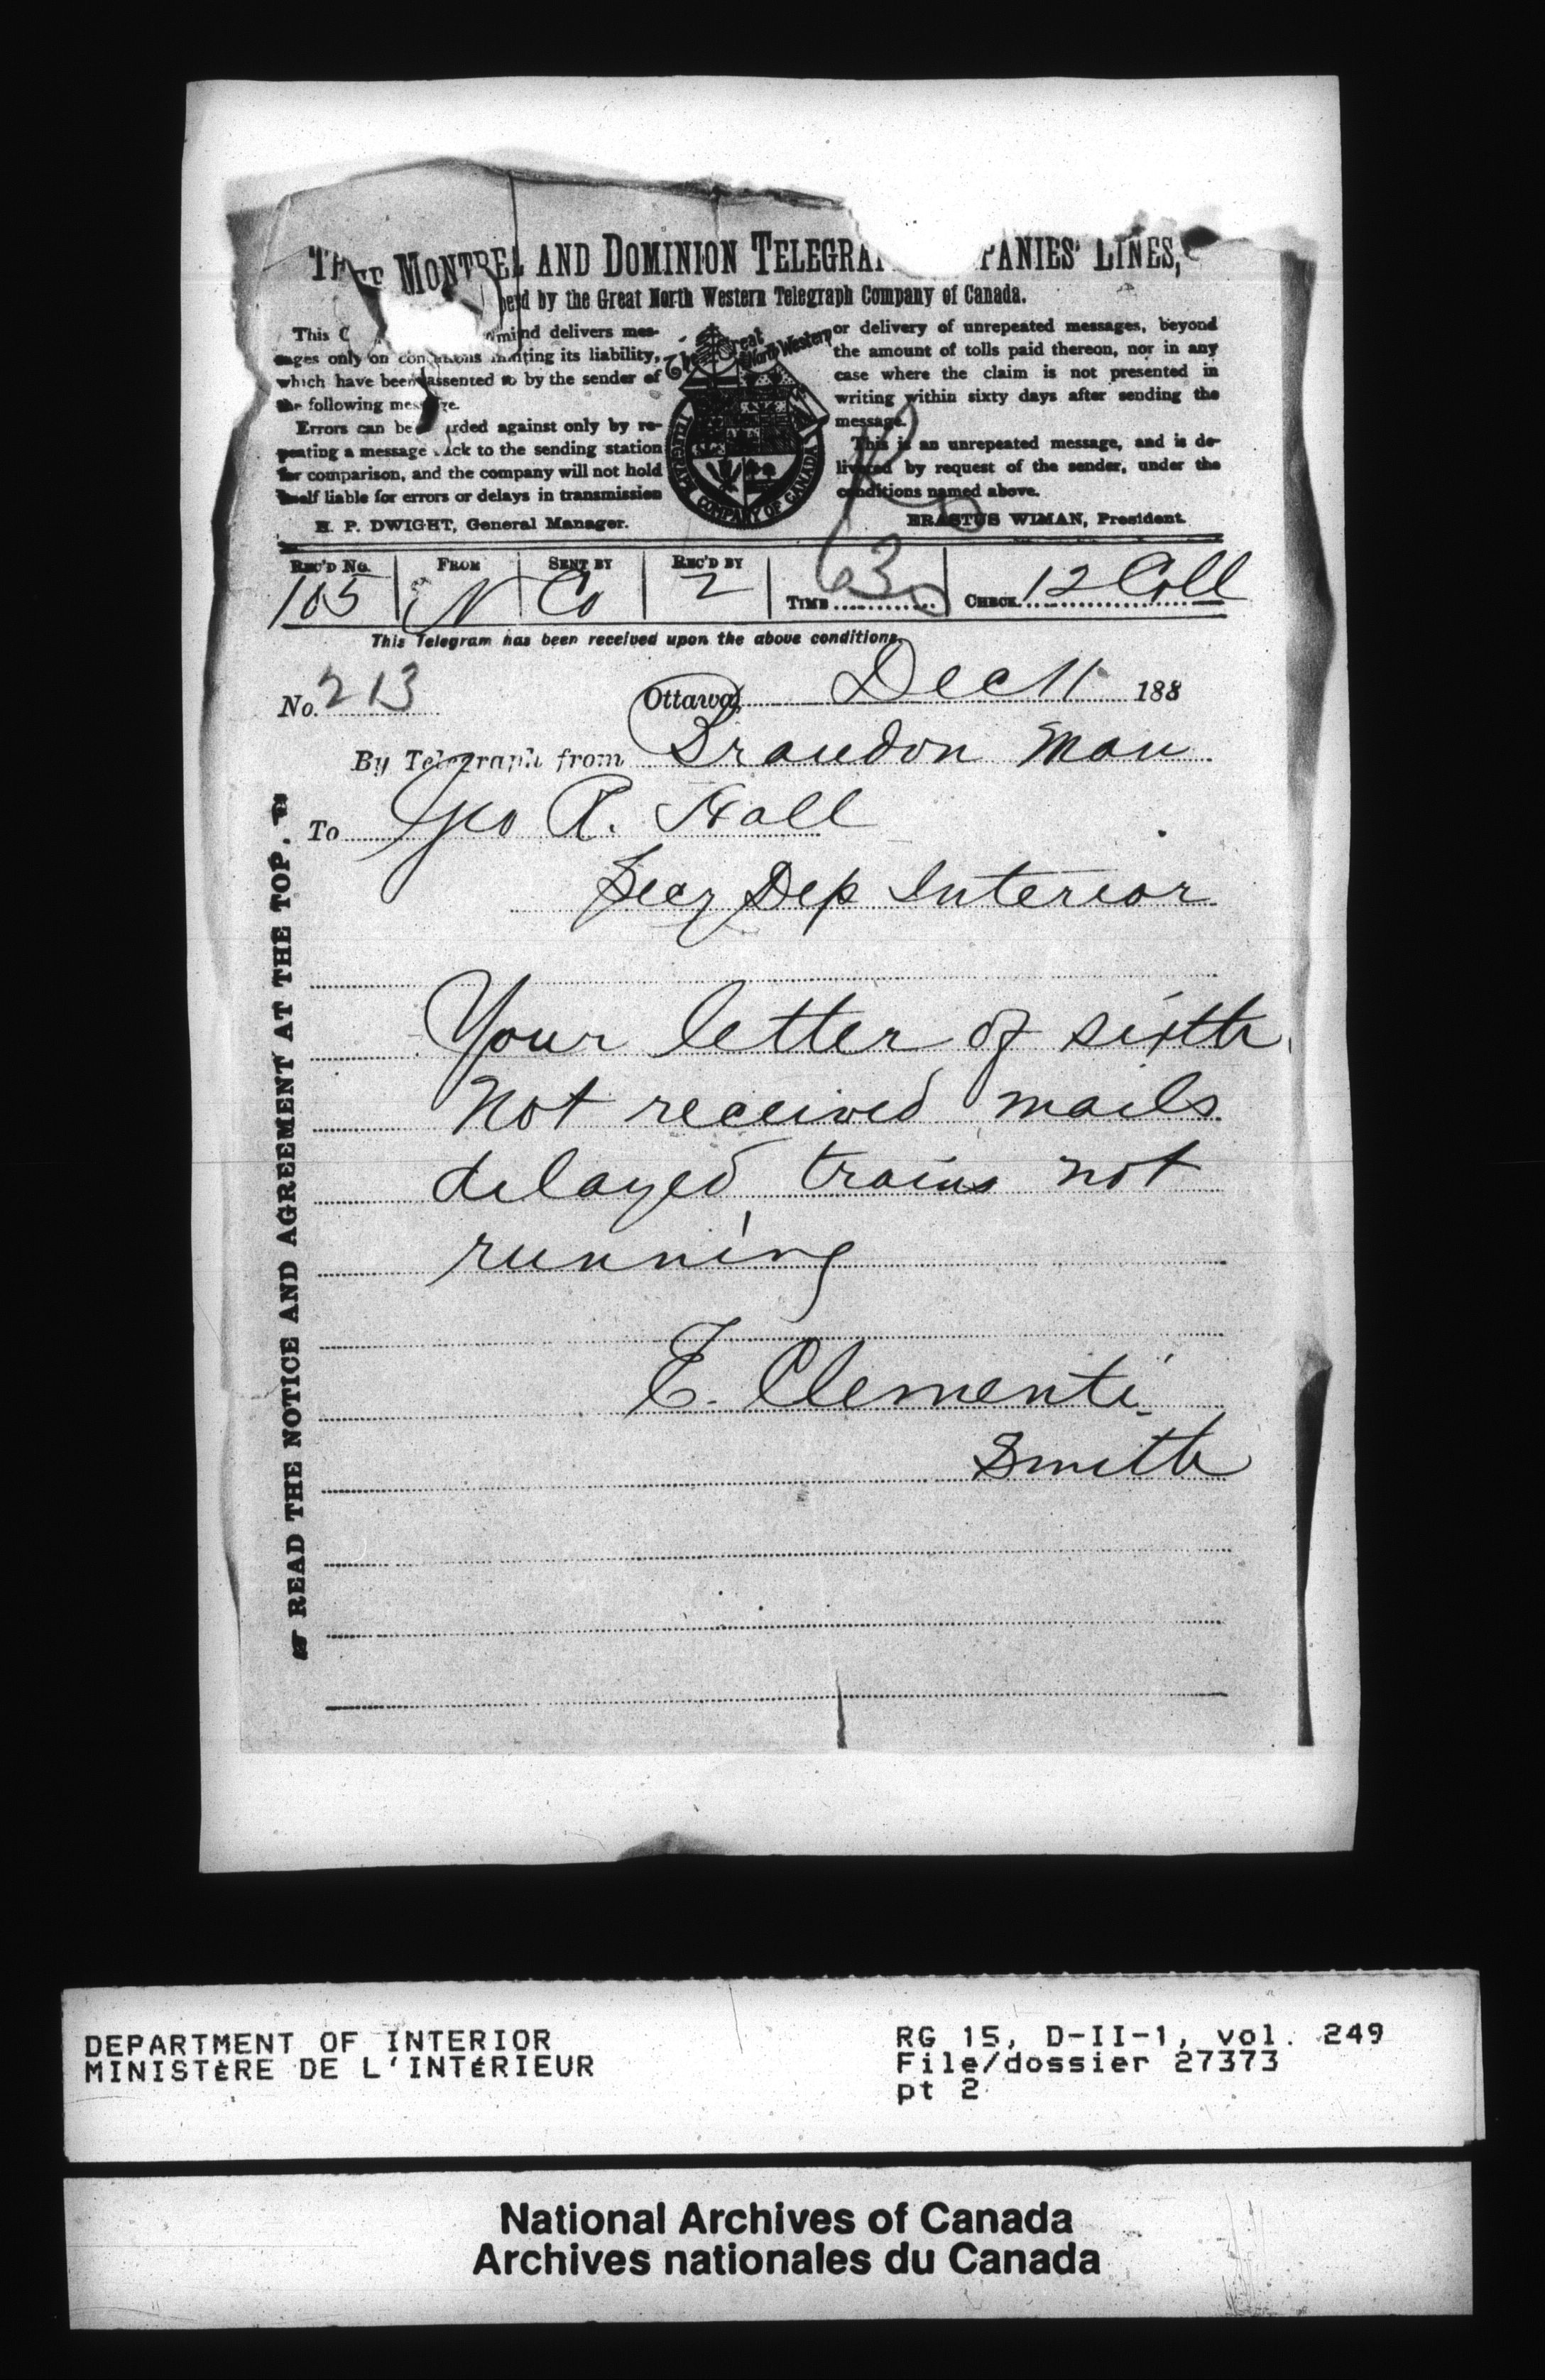 MONTRE AND DOMINION TELEGRA PANIES' LINES,
by the Great North Western Telegraph Company of Canada.
This C and delivers mes-
sages only on its liability,
which have been assented to by the sender of
the following
Errors can be against only by re-
peating a message to the sending station
for comparison, and the company will not hold
itself liable for errors or delays in transmission
H. P. DWIGHT, General Manager.
The Great North Western
TELEGRAPH COMPANY OF CANADA
or delivery of unrepeated messages, beyond
the amount of tolls paid thereon, nor in any
case where the claim is not presented in
writing within sixty days after sending the
message.
This is an unrepeated message, and is de-
livered by request of the sender, under the
conditions named above.
ERASTUS WIMAN, President.
REC'D No. FROM SENT BY REC'D BY TIME CHECK
105 N Co 2 630 12 Coll
This Telegram has been received upon the above conditions.
No. 213 Ottawa, Dec 11 188
By Telegraph from Brandon Man
To Geo R. Hall
Secy Dep Interior
Your letter of sixth
Not received mails
delayed trains not
running
E. Clementi
Smith
READ THE NOTICE AND AGREEMENT AT THE TOP.
DEPARTMENT OF INTERIOR
MINISTÈRE DE L'INTÉRIEUR
RG 15, D-II-1, vol. 249
File/dossier 27373
pt 2
National Archives of Canada
Archives nationales du Canada